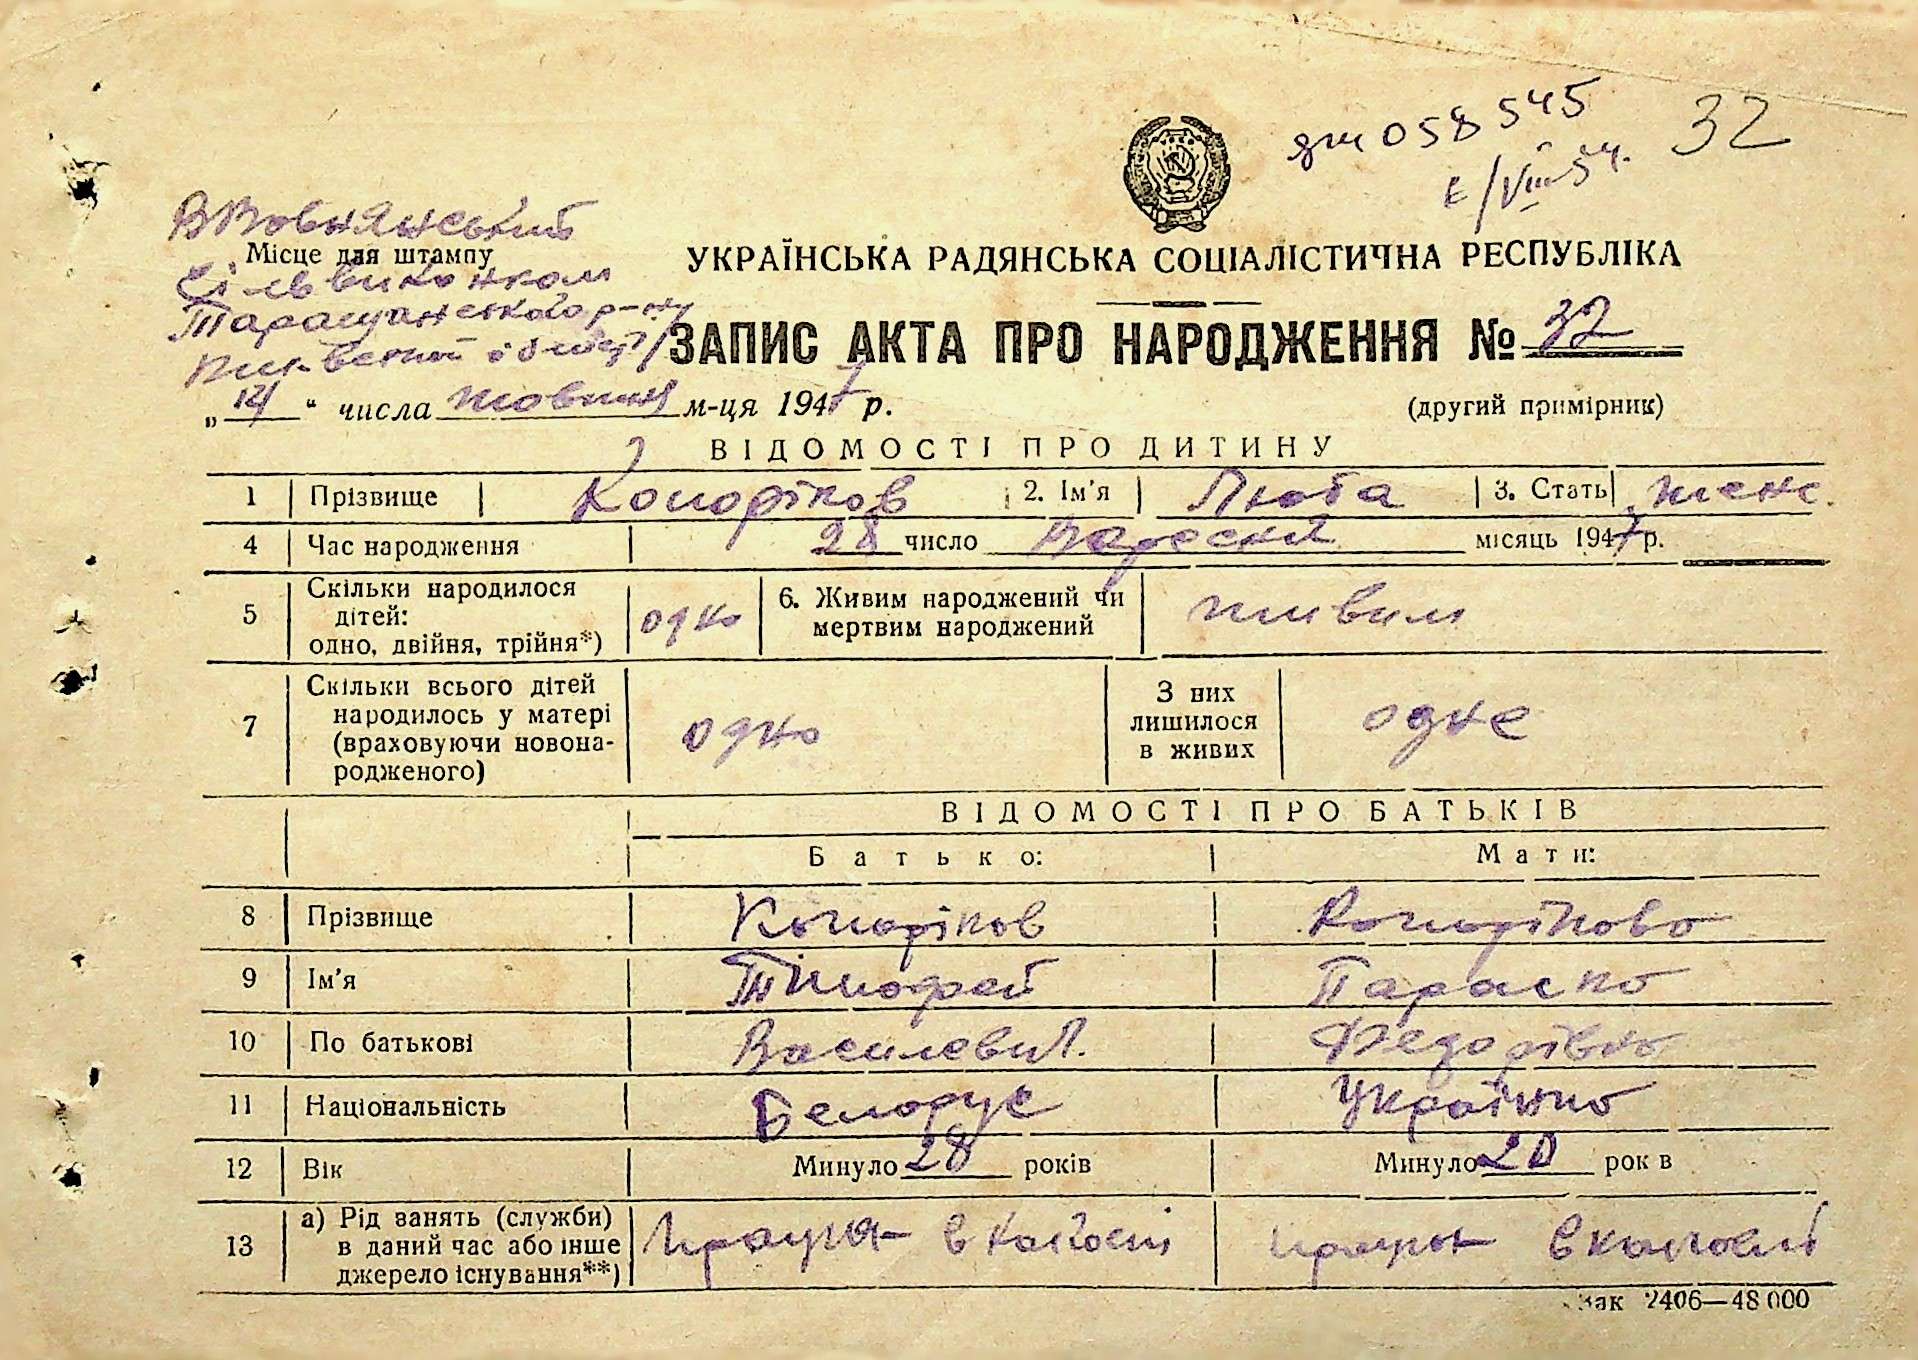 058545 32
/VIII 54.
В Вовнянський
Місце для штампу
сільвиконком
Таращанського р-ну
УКРАЇНСЬКА РАДЯНСЬКА СОЦІАЛІСТИЧНА РЕСПУБЛІКА
ЗАПИС АКТА ПРО НАРОДЖЕННЯ № 32
„14“ числа жовтня м-ця 1947 р.
(другий примірник)
ВІДОМОСТІ ПРО ДИТИНУ
1 Прізвище 2. Ім'я Люба 3. Стать женс.
4 Час народження 28 число Вересня місяць 1947 р.
5 Скільки народилося дітей: одно, двійня, трійня*) одно 6. Живим народжений чи мертвим народжений живим
7 Скільки всього дітей народилось у матері (враховуючи новонародженого) одно З них лишилося в живих одне
ВІДОМОСТІ ПРО БАТЬКІВ
Батько: Мати:
8 Прізвище
9 Ім'я Тимофей Параска
10 По батькові Василевич. Федорівна
11 Національність Белорус Українка
12 Вік Минуло 28 років Минуло 20 рок в
13 а) Рід занять (служби) в даний час або інше джерело існування**) працює в колгоспі працює в колгоспі
Зак 2406—48 000